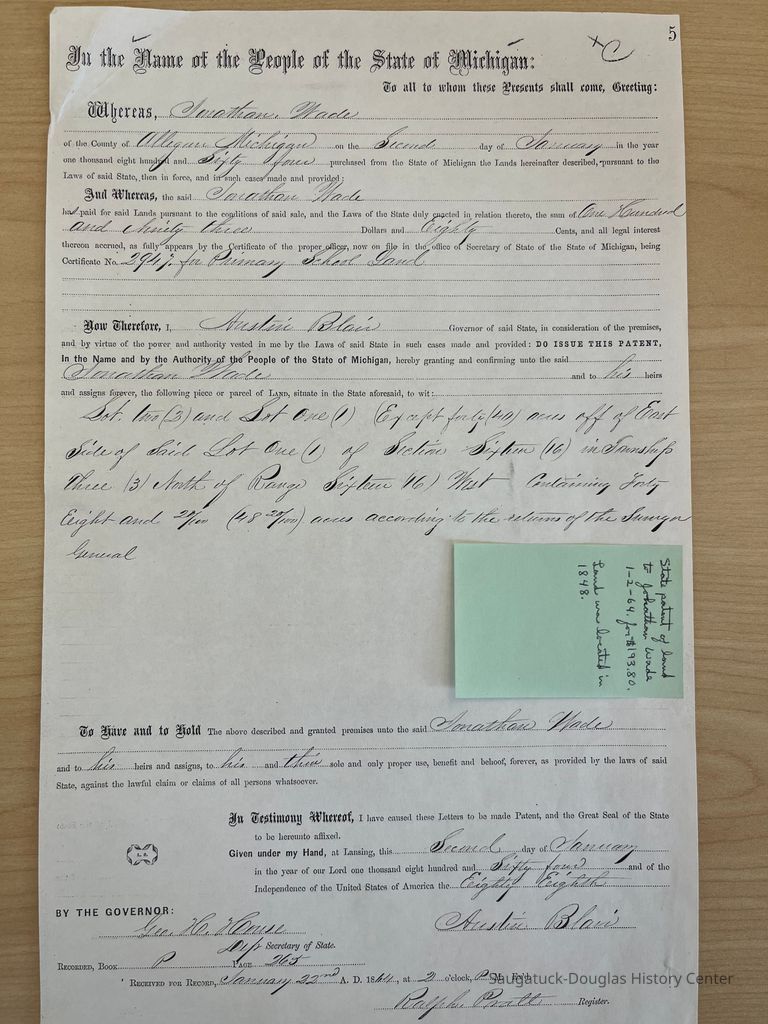 5
In the Name of the People of the State of Michigan:
To all to whom these Presents shall come, Greeting:
Whereas, Jonathan Wade
of the County of Allegan Michigan on the Second day of January in the year
one thousand eight hundred and Sixty four purchased from the State of Michigan the Lands hereinafter described, pursuant to the
Laws of said State, then in force, and in such cases made and provided:
And Whereas, the said Jonathan Wade
has paid for said Lands pursuant to the conditions of said sale, and the Laws of the State duly enacted in relation thereto, the sum of One Hundred
and Ninety three Dollars and Eighty Cents, and all legal interest
thereon accrued, as fully appears by the Certificate of the proper officer, now on file in the office of Secretary of State of the State of Michigan, being
Certificate No. 2947 for Primary School Land
Now Therefore, I, Austin Blair Governor of said State, in consideration of the premises,
and by virtue of the power and authority vested in me by the Laws of said State in such cases made and provided: DO ISSUE THIS PATENT,
In the Name and by the Authority of the People of the State of Michigan, hereby granting and confirming unto the said
Jonathan Wade and to his heirs
and assigns forever, the following piece or parcel of LAND, situate in the State aforesaid, to wit:
Lot two (2) and Lot One (1) (Except forty (40) acres off of East
Side of Said Lot One (1) of Section Sixteen (16) in Township
three (3) North of Range Sixteen (16) West Containing Forty
Eight and 20/100 (48 20/100) acres according to the returns of the Surveyor
General
State patent of land
to Jonathan Wade
1-2-64. for $193.80.
Land was located in
1848.
To Have and to Hold The above described and granted premises unto the said Jonathan Wade
and to his heirs and assigns, to his and their sole and only proper use, benefit and behoof, forever, as provided by the laws of said
State, against the lawful claim or claims of all persons whatsoever.
In Testimony Whereof, I have caused these Letters to be made Patent, and the Great Seal of the State
to be hereunto affixed.
L. S.
Given under my Hand, at Lansing, this Second day of January
in the year of our Lord one thousand eight hundred and Sixty four and of the
Independence of the United States of America the Eighty Eighth
BY THE GOVERNOR:
Geo. H. House Austin Blair
Dep Secretary of State.
RECORDED, BOOK P PAGE 265
RECEIVED FOR RECORD, January 22nd A. D. 1864, at 2 o'clock, P M.
Saugatuck-Douglas History Center
Ralph Pratt Register.